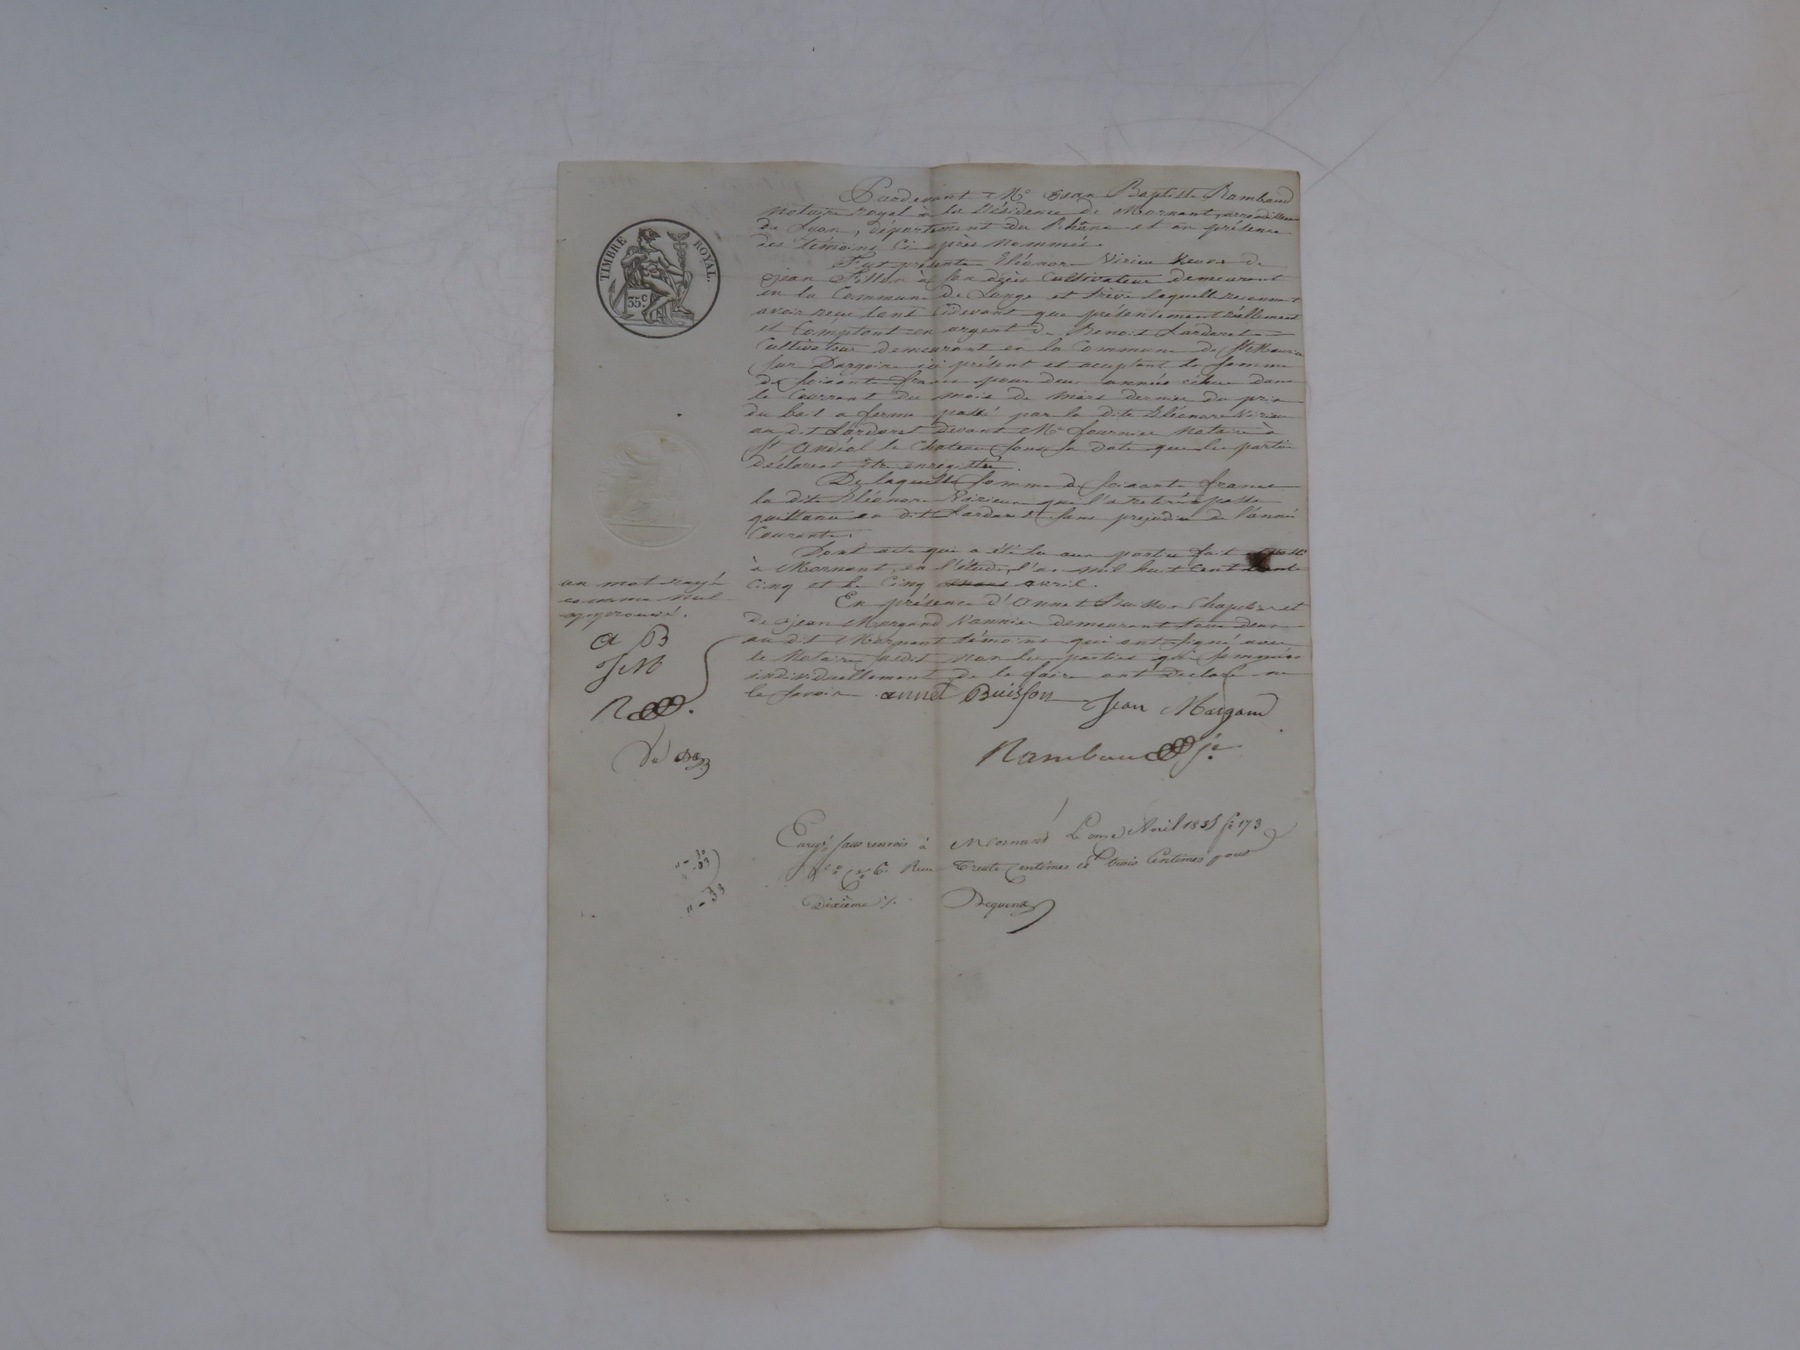 TIMBRE ROYAL.
35.c
Pardevant Me Jean Baptiste Rambaud
Notaire royal à la Résidence de Mornant, arrondissem
de Lyon, département du Rhône et en présence
des témoins ci après Nommés.
Fut présente Eléonore Virieu veuve de
jean Fillon à son décès Cultivateur demeurant
en la Commune de Longe et trève laquelle reconnait
avoir reçu tant cidevant que présentement réellement
et Comptant en argent de Benoit Lardaret
Cultivateur demeurant en la Commune de St Maurice
sur Dargoire ici présent et acceptant la somme
de soixante francs pour deux années échue dans
le Courrant du mois de mars dernier du prix
du bail a ferme passé par la dite Eléonore Virieu
au dit Lardaret devant Me fournier Notaire à
St Andéol le Chateau sous sa date que les parties
déclarent être enregistré.
De laquelle somme de soixante francs
la dite Eléonore Virieu qui l'a retirée passe
quittance au dit Lardaret sans prejudice de l'année
Courante.
Dont acte qui a été lu aux parties fait et passé
à Mornant, en l'étude, l'an mil huit Cent trente
Cinq et le Cinq avril.
En présence d'annet Buisson Chapelier et
de jean Margand Vannier demeurant tous deux
au dit Mornant témoins qui ont signé avec
le Notaire susdit non les parties qui sommées
individuellement de le faire ont déclaré ne
le savoir.
annet Buisson Jean Margand
Rambaud
un mot rayé
comme nul
approuvé.
A B
JM
R
Enregé sans renvois à Mornant Le onze Avril 1835 fo 173
Ro Co 6. Reçu Trente Centimes et trois Centimes pour
Dixième
"-.30
.03
"-33